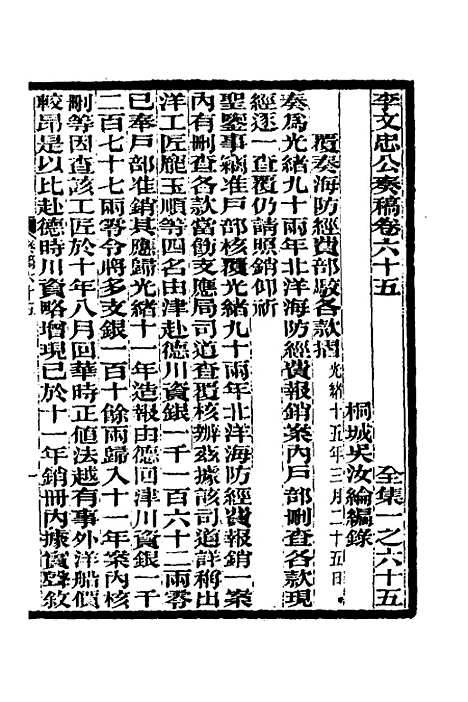 李文忠公奏稿卷六十五　全集一之六十五
桐城吳汝綸編錄
覆奏海防經費部駁各款摺 光緒十五年三月二十五日
奏爲光緒九十兩年北洋海防經費報銷案內戶部刪查各款現
經逐一查覆仍請照銷仰祈
聖鑒事竊准戶部核覆光緒九十兩年北洋海防經費報銷一案
內有刪查各款當飭支應局司道查覆核辦茲據該司道詳稱出
洋工匠龐玉順等四名由津赴德川資銀一千一百六十二兩零
已奉戶部准銷其應歸光緒十一年造報由德回津川資銀一千
二百七十七兩零令將多支銀一百十餘兩歸入十一年案內核
刪等因查該工匠於十年八月回華時正値法越有事外洋船價
較昂是以比赴德時川資略增現已於十一年銷冊內據實聲敘